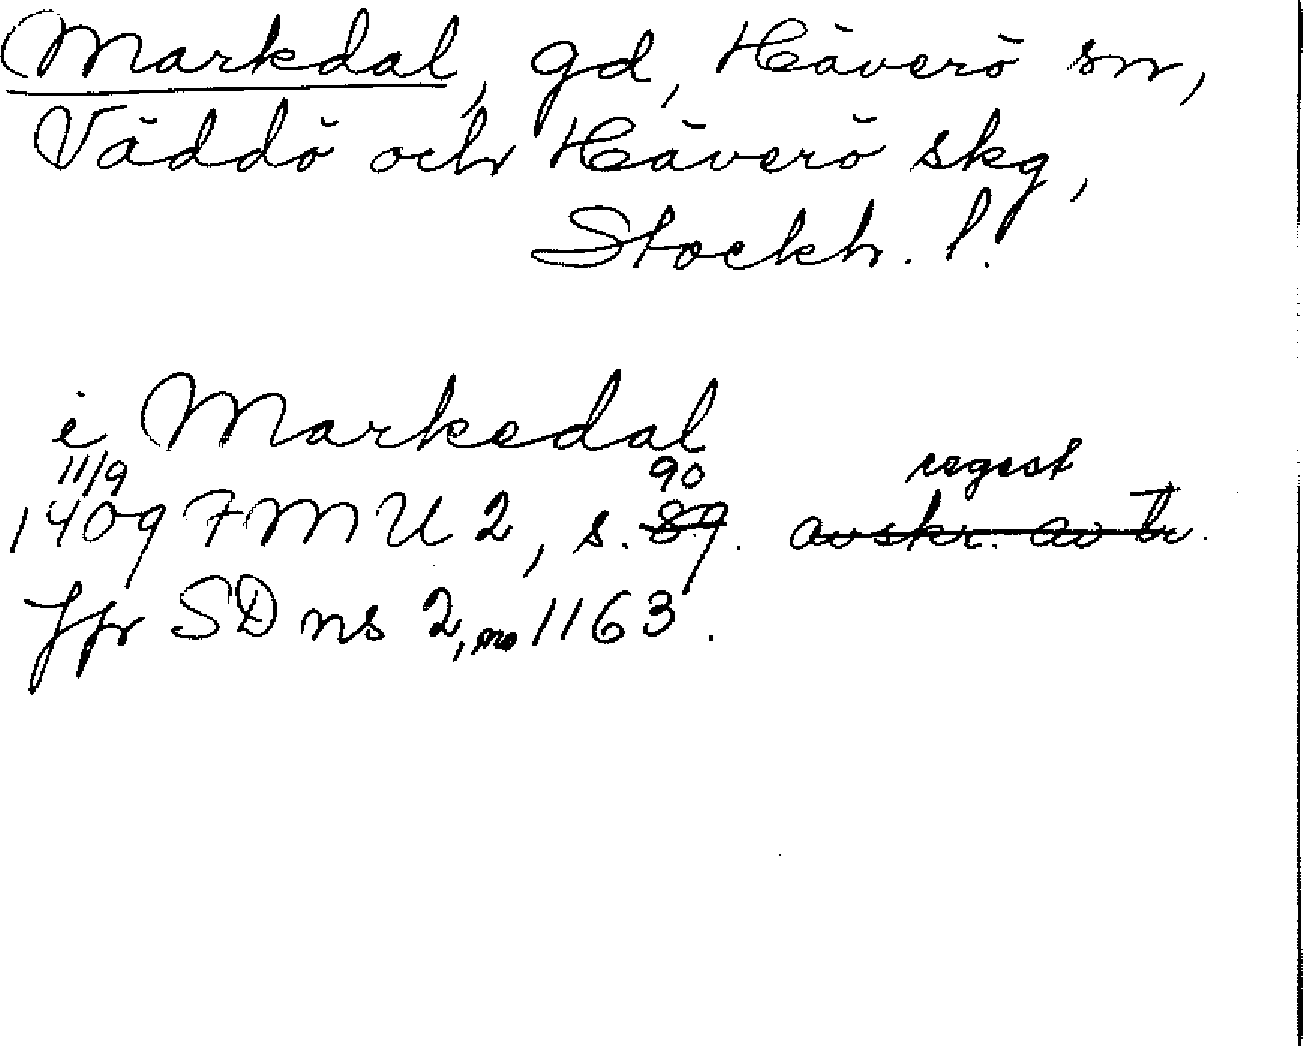 Markdal, gd, Häverö sn,
Väddö och Häverö skg,
Stockh. l.
i Markedal
11/9 90 regest
1409 FMU 2, s. 89. avskr. av tr.
Jfr SD ns 2, no 1163.